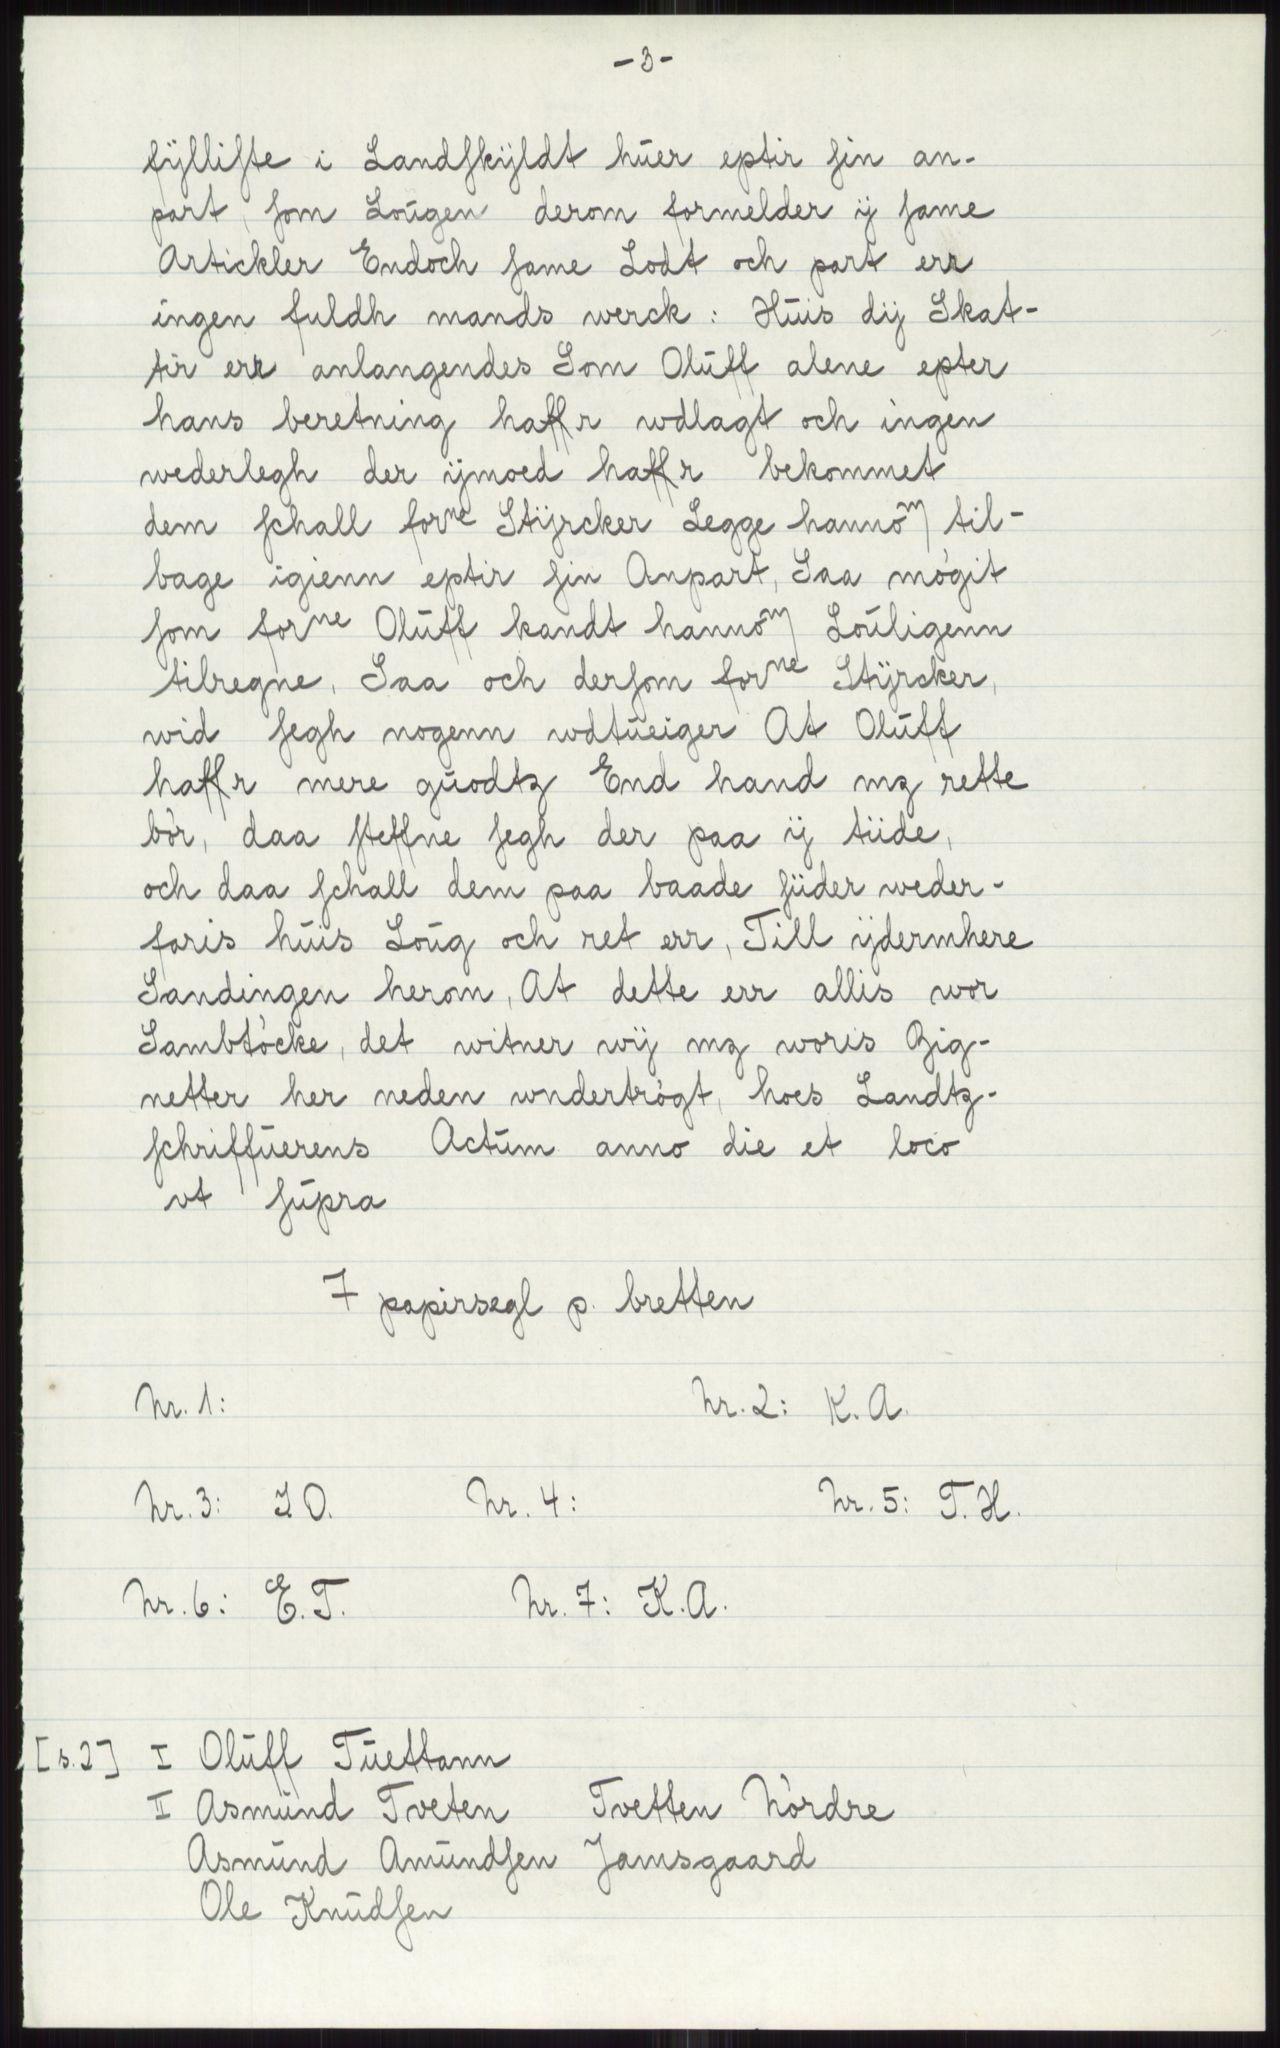 -3-
fÿlliste i Landskÿldt huer eptir sin an-
part, som Lougen derom formelder ij same
Artickler Endoch same Lodt och part err
ingen fuldh mands werck: Huis dij Skat-
tir err anlangendes Som Oluff alene epter
hans beretning haffr wdlagt och ingen
wederlegh der ijmoed haffr bekommet
dem schall forne Stÿrcker Legge hannom til-
bage igienn eptir sin Anpart, Saa mögit
som forne Oluff kandt hannom Louligenn
tilregne, Saa och dersom forne Stÿrcker,
wid segh nogenn wdtueiger At Oluff
haffr mere guodtz End hand mz rette
bör, daa steffne segh der paa ij tiide,
och daa schall dem paa baade siider weder-
faris huis Loug och ret err, Till ijdermhere
Sandingen herom, At dette err allis wor
Sambtöcke, det witner wij mz woris Zig-
netter her neden wndertrögt, hoes Landtz-
schriffuerens Actum anno die et loco
vt supra
7 papirsegl p. bretten
Nr. 1:  Nr. 2: K. A.
Nr. 3: J O.  Nr. 4:  Nr. 5: T. H.
Nr. 6: E. T.  Nr. 7: K. A.
[s. 2] I Oluff Tuettann
II Asmund Tveten  Tvetten Nördre
Asmund Amundsen Jamsgaard
Ole Knudsen